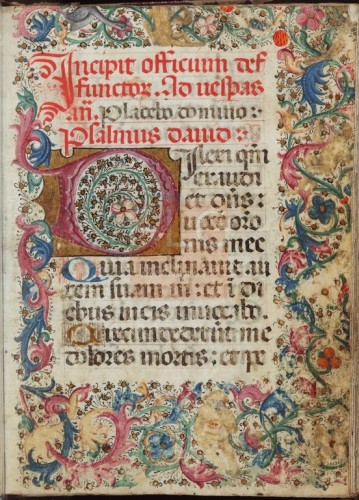 Incipit officium def
functor. Ad uespas
añ. Placebo domino:
Psalmus dauid:
Dilexi qm̄
exaudi
et dñs:
uocē oro
nis mee
Quia inclinauit au
rem suam m̄: et ī di
ebus meis inuocabo.
Circumdederūt me
dolores mortis: et pe